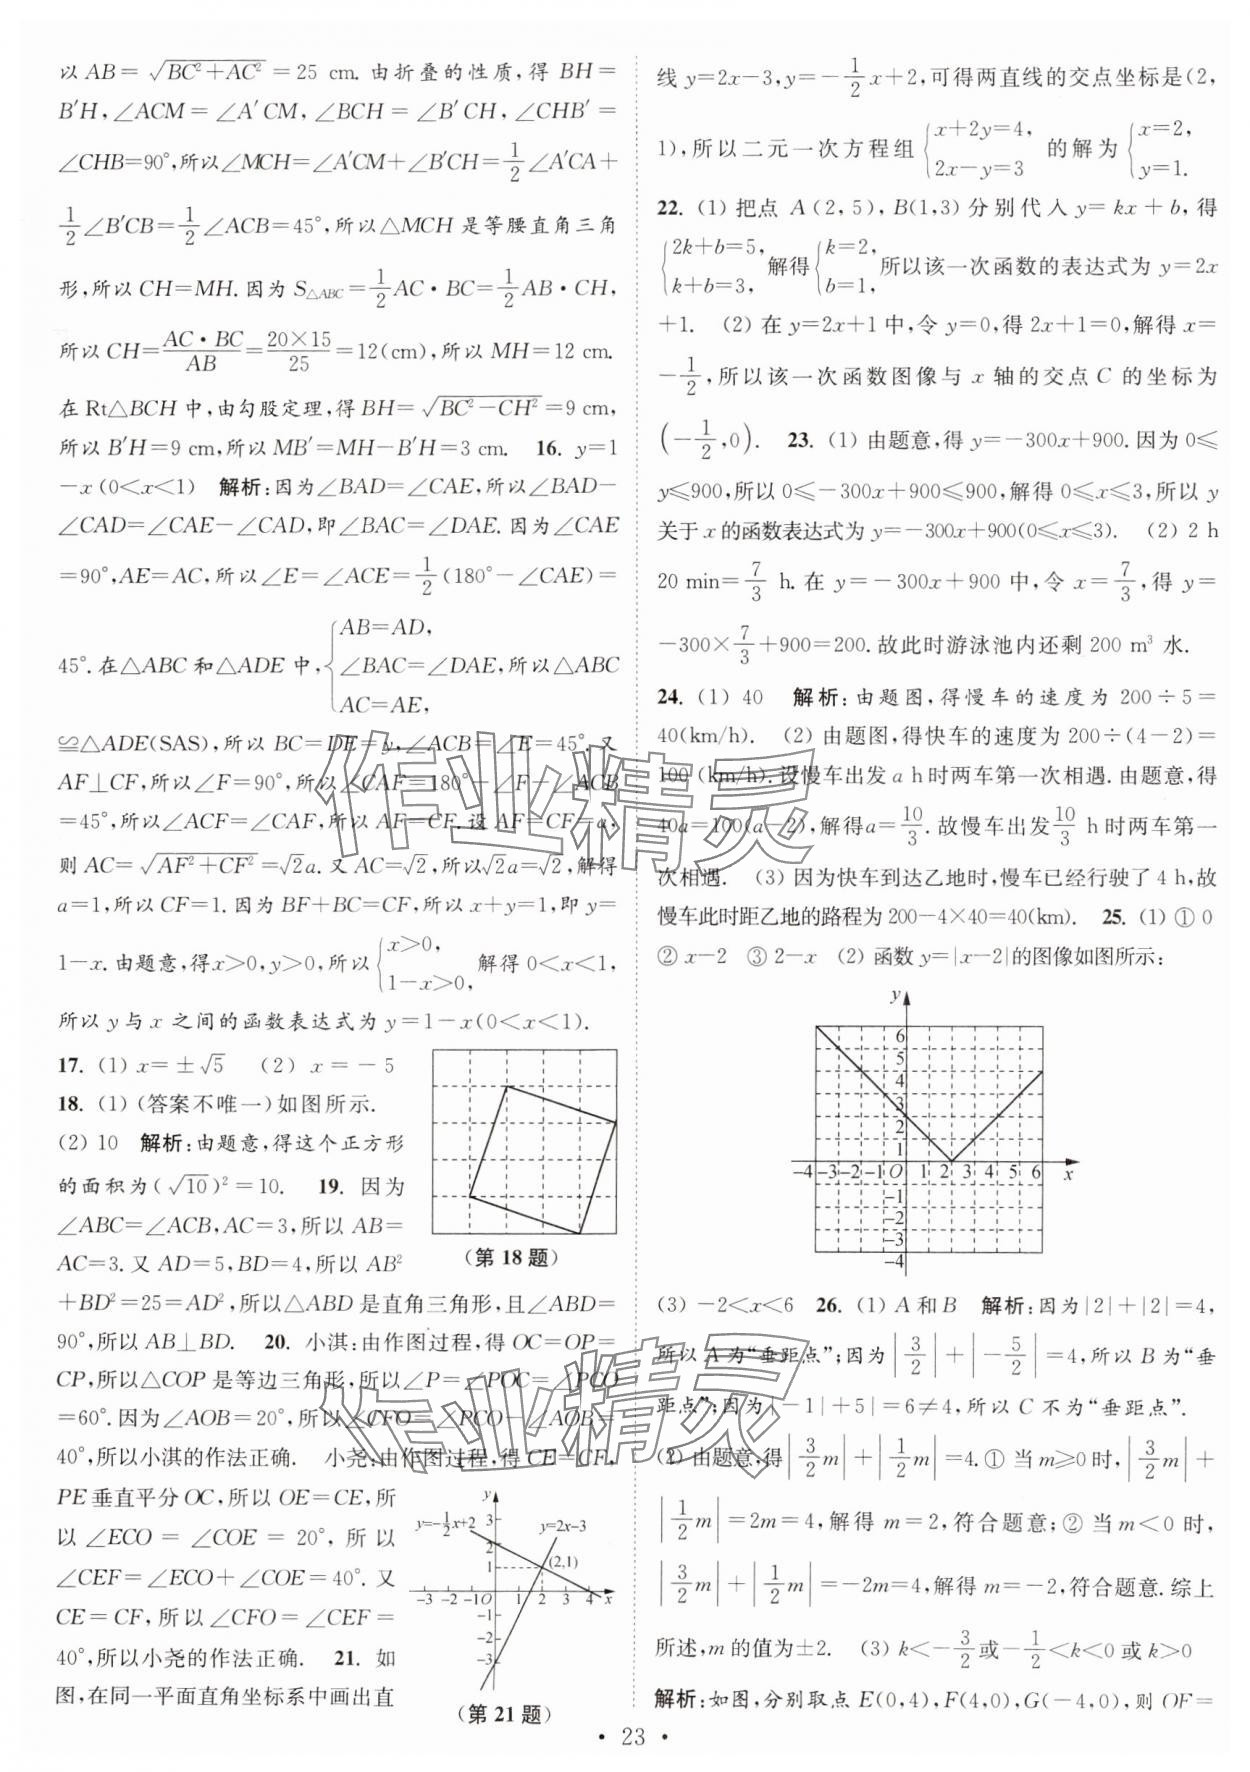 以 AB=√(BC²+AC²)=25 cm. 由折叠的性质,得 BH=
B′H,∠ACM=∠A′CM,∠BCH=∠B′CH,∠CHB′=
∠CHB=90°,所以∠MCH=∠A′CM+∠B′CH=1/2∠A′CA+
1/2∠B′CB=1/2∠ACB=45°,所以△MCH 是等腰直角三角
形,所以 CH=MH. 因为 S△ABC=1/2AC·BC=1/2AB·CH,
所以 CH=AC·BC/AB=20×15/25=12(cm),所以 MH=12 cm.
在 Rt△BCH 中,由勾股定理,得 BH=√(BC²-CH²)=9 cm,
所以 B′H=9 cm,所以 MB′=MH-B′H=3 cm. 16. y=1
-x(0<x<1) 解析:因为∠BAD=∠CAE,所以∠BAD-
∠CAD=∠CAE-∠CAD,即∠BAC=∠DAE. 因为∠CAE
=90°,AE=AC,所以∠E=∠ACE=1/2(180°-∠CAE)=
45°. 在△ABC 和△ADE 中,{AB=AD, ∠BAC=∠DAE, AC=AE, 所以△ABC
≌△ADE(SAS),所以 BC=DE=y,∠ACB=∠E=45°. 又
AF⊥CF,所以∠F=90°,所以∠CAF=180°-∠F-∠ACB
=45°,所以∠ACF=∠CAF,所以 AF=CF. 设 AF=CF=a,
则 AC=√(AF²+CF²)=√2a. 又 AC=√2,所以√2a=√2,解得
a=1,所以 CF=1. 因为 BF+BC=CF,所以 x+y=1,即 y=
1-x. 由题意,得x>0,y>0,所以{x>0, 1-x>0, 解得 0<x<1,
所以 y 与 x 之间的函数表达式为 y=1-x(0<x<1).
17. (1) x=±√5 (2) x=-5
18. (1) (答案不唯一)如图所示.
(2) 10 解析:由题意,得这个正方形
的面积为(√10)²=10. 19. 因为
∠ABC=∠ACB,AC=3,所以 AB=
AC=3. 又 AD=5,BD=4,所以 AB²
(第 18 题)
+BD²=25=AD²,所以△ABD 是直角三角形,且∠ABD=
90°,所以 AB⊥BD. 20. 小淇:由作图过程,得 OC=OP=
CP,所以△COP 是等边三角形,所以∠P=∠POC=∠PCO
=60°. 因为∠AOB=20°,所以∠CFO=∠PCO-∠AOB=
40°,所以小淇的作法正确. 小尧:由作图过程,得 CE=CF,
PE 垂直平分 OC,所以 OE=CE,所
以 ∠ECO = ∠COE = 20°, 所 以
∠CEF=∠ECO+∠COE=40°. 又
CE=CF,所以∠CFO=∠CEF=
40°,所以小尧的作法正确. 21. 如
图,在同一平面直角坐标系中画出直
y
y=-1/2x+2
y=2x-3
3
2
1
(2,1)
-3 -2 -1 O 1 2 3 4 x
-1
-2
-3
(第 21 题)
线 y=2x-3,y=-1/2x+2,可得两直线的交点坐标是(2,
1),所以二元一次方程组{x+2y=4, 2x-y=3 的解为{x=2, y=1.
22. (1) 把点 A(2,5),B(1,3)分别代入 y=kx+b,得
{2k+b=5, k+b=3, 解得{k=2, b=1, 所以该一次函数的表达式为 y=2x
+1. (2) 在 y=2x+1 中,令 y=0,得 2x+1=0,解得 x=
-1/2,所以该一次函数图像与 x 轴的交点 C 的坐标为
(-1/2,0). 23. (1) 由题意,得 y=-300x+900. 因为 0≤
y≤900,所以 0≤-300x+900≤900,解得 0≤x≤3,所以 y
关于 x 的函数表达式为 y=-300x+900(0≤x≤3). (2) 2 h
20 min=7/3 h. 在 y=-300x+900 中,令 x=7/3,得 y=
-300×7/3+900=200. 故此时游泳池内还剩 200 m³ 水.
24. (1) 40 解析:由题图,得慢车的速度为 200÷5=
40(km/h). (2) 由题图,得快车的速度为 200÷(4-2)=
100 (km/h). 设慢车出发 a h时两车第一次相遇. 由题意,得
40a=100(a-2),解得a=10/3. 故慢车出发10/3 h时两车第一
次相遇. (3) 因为快车到达乙地时,慢车已经行驶了 4 h,故
慢车此时距乙地的路程为 200-4×40=40(km). 25. (1) ① 0
② x-2 ③ 2-x (2) 函数 y=|x-2|的图像如图所示:
y
6
5
4
3
2
1
-4 -3 -2 -1 O 1 2 3 4 5 6 x
-1
-2
-3
-4
(3) -2<x<6 26. (1) A 和 B 解析:因为|2|+|2|=4,
所以 A 为“垂距点”;因为|3/2|+|-5/2|=4,所以 B 为“垂
距点”;因为|-1|+|5|=6≠4,所以 C 不为“垂距点”.
(2) 由题意,得|3/2m|+|1/2m|=4. ① 当 m≥0 时,|3/2m|+
|1/2m|=2m=4,解得 m=2,符合题意;② 当 m<0 时,
|3/2m|+|1/2m|=-2m=4,解得 m=-2,符合题意. 综上
所述,m 的值为±2. (3) k<-3/2或-1/2<k<0 或 k>0
解析:如图,分别取点 E(0,4),F(4,0),G(-4,0),则 OF=
作业精灵
作业精灵
• 23 •